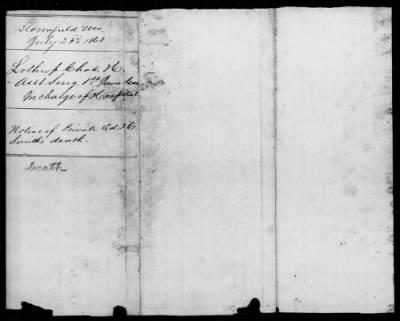 Bloomfield Mo
July 23d 186
Lothrop Chas H.
Asst Surg 1st Iowa Cav
In charge of Hospital
Notice of Private Ed. H.
Smiths death.
Death